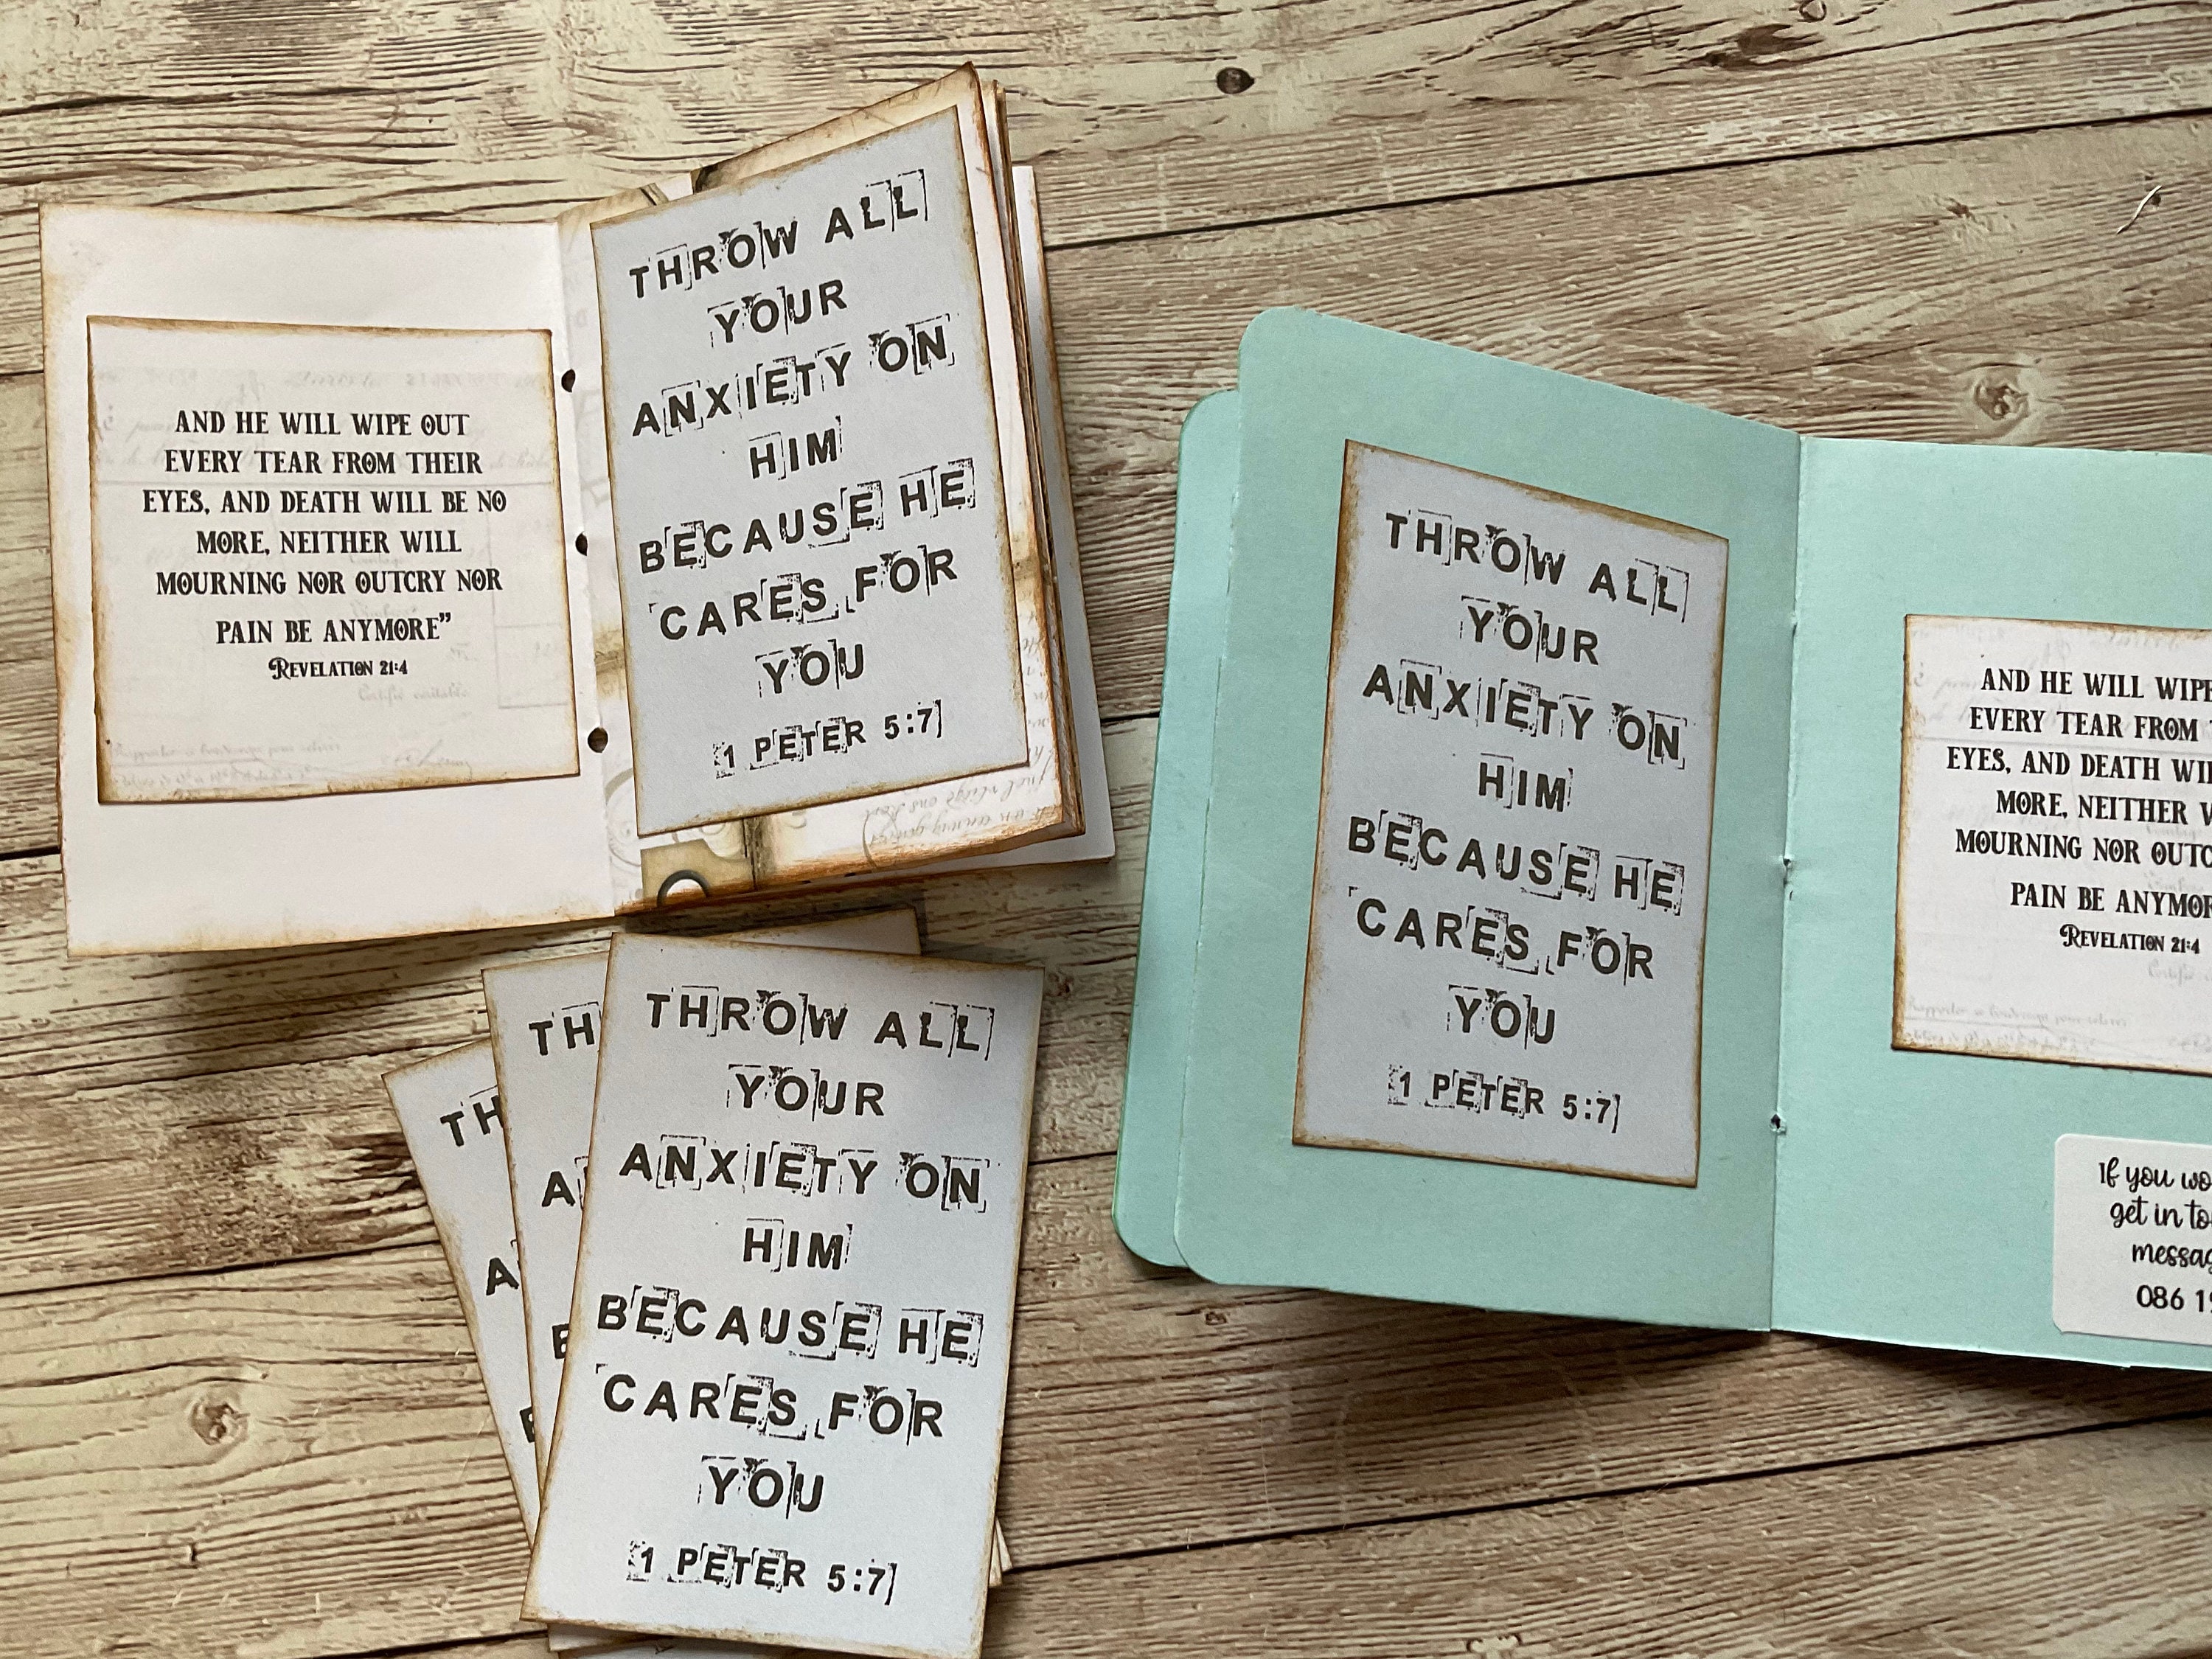 AND HE WILL WIPE OUT
EVERY TEAR FROM THEIR
EYES, AND DEATH WILL BE NO
MORE, NEITHER WILL
MOURNING NOR OUTCRY NOR
PAIN BE ANYMORE”
REVELATION 21:4
THROW ALL
YOUR
ANXIETY ON
HIM
BECAUSE HE
CARES FOR
YOU
1 PETER 5:7
THROW ALL
YOUR
ANXIETY ON
HIM
BECAUSE HE
CARES FOR
YOU
1 PETER 5:7
AND HE WILL WIPE
EVERY TEAR FROM
EYES, AND DEATH
MORE, NEITHER
MOURNING NOR
PAIN BE
REVELATION 21:4
If you
get in
086
THROW ALL
YOUR
ANXIETY ON
HIM
BECAUSE HE
CARES FOR
YOU
1 PETER 5:7